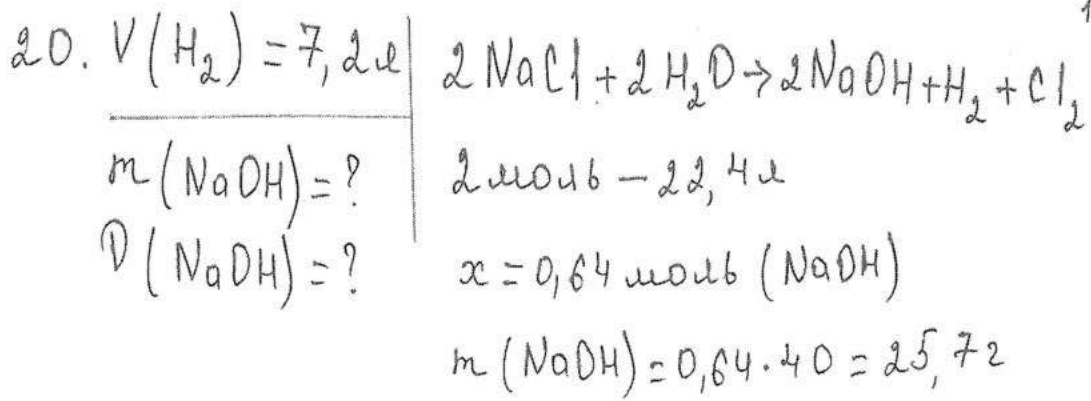 20. V(H₂) = 7,2 л
m(NaOH) = ?
ν(NaOH) = ?
2NaCl + 2H₂O → 2NaOH + H₂ + Cl₂
2 моль – 22,4 л
x = 0,64 моль (NaOH)
m(NaOH) = 0,64 · 40 = 25,7 г